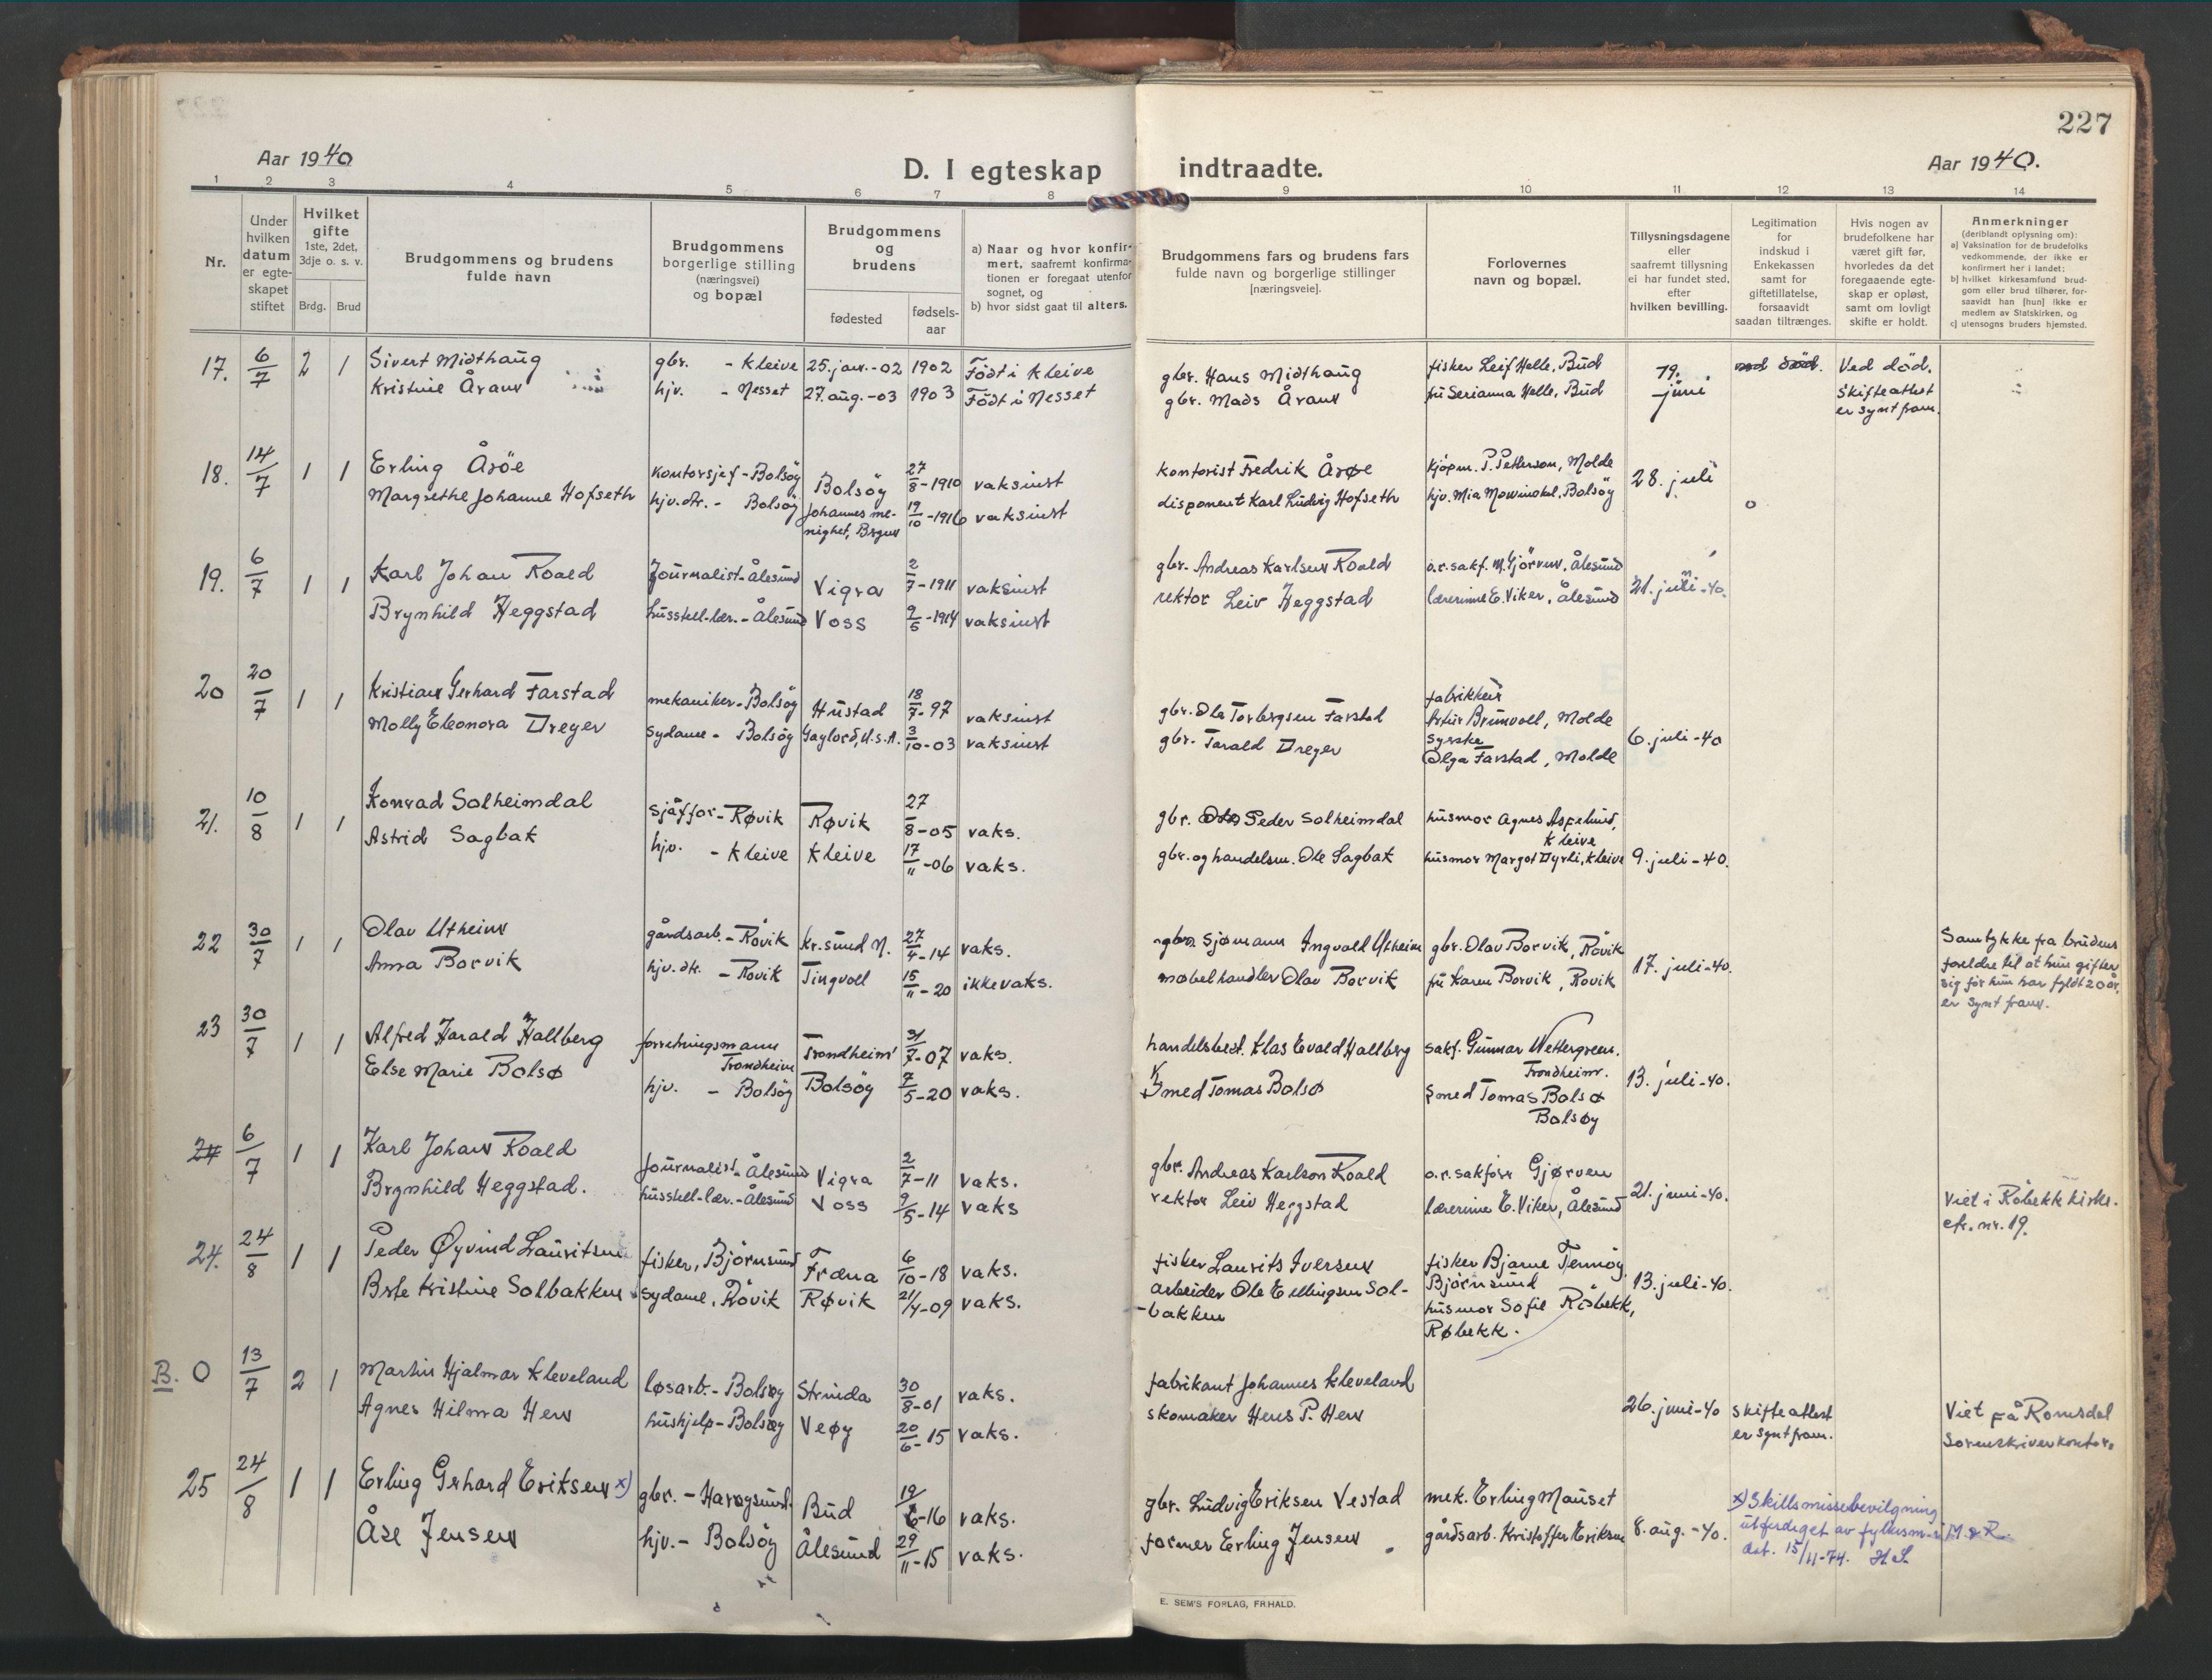 227
Aar 1940
D. I egteskap indtraadte.
Aar 1940.
1 2 3 4 5 6 7 8 9 10 11 12 13 14
Nr.
Under hvilken datum er egte-skapet stiftet
Hvilket gifte 1ste, 2det, 3dje o. s. v.
Brdg. Brud
Brudgommens og brudens fulde navn
Brudgommens borgerlige stilling (næringsvei) og bopæl
Brudgommens og brudens
fødested
fødsels-aar
a) Naar og hvor konfir-mert, saafremt konfirma-tionen er foregaat utenfor sognet, og
b) hvor sidst gaat til alters.
Brudgommens fars og brudens fars fulde navn og borgerlige stillinger [næringsveie].
Forlovernes navn og bopæl.
Tillysningsdagene eller saafremt tillysning ei har fundet sted, efter hvilken bevilling.
Legitimation for indskud i Enkekassen samt for giftetillatelse, forsaavidt saadan tiltrænges.
Hvis nogen av brudefolkene har været gift før, hvorledes da det foregaaende egte-skap er opløst, samt om lovligt skifte er holdt.
Anmerkninger (deriblandt oplysning om):
a) Vaksination for de brudefolks vedkommende, der ikke er konfirmert her i landet;
b) hvilket kirkesamfund brud-gom eller brud tilhører, for-saavidt han [hun] ikke er medlem av Statskirken, og
c) utensogns bruders hjemsted.
17. 6/7 2 1 Sivert Midthaug gbr. - Kleive 25. jan.-02 1902 Født i Kleive gbr. Hans Midthaug fisker Leif Helle, Bud 19. juni ved død. Ved død. Skifteattest er synt fram.
Kristine Årans hjv. - Nesset 27. aug.-03 1903 Født i Nesset gbr. Mads Årans fru Serianna Helle, Bud
18. 14/7 1 1 Erling Årøe kontorsjef - Bolsøy Bolsøy 27/8-1910 vaksinst kontorist Fredrik Årøe kjøpm. P. Petterson, Molde 28. juli
Margrethe Johanne Hofseth hjv.dtr. - Bolsøy Johannes me-nighet, Brgen 19/10-1916 vaksinst disponent Karl Ludvig Hofseth hjv. Mia Mowinckel, Bolsøy o
19. 6/7 1 1 Karl Johan Roald Journalist - Ålesund Vigra 2/7-1911 vaksinst gbr. Andreas Karlsen Roald o.r.sakf. M. Gjörven, Ålesund 21. juni-40.
Brynhild Heggstad husstell-lær. - Ålesund Voss 9/5-1914 vaksinst rektor Leiv Heggstad lærerinne E. Viker, Ålesund
20 20/7 1 1 Kristian Gerhard Farstad mekaniker - Bolsøy Hustad 18/7-97 vaksinst gbr. Ola Torbergsen Farstad fabrikkeier Artur Brunvoll, Molde 6. juli-40
Molly Eleonora Dreyer sydame - Bolsøy Gaylord, U.S.A. 3/10-03 vaksinst gbr. Tarald Dreyer syerske Olga Farstad, Molde
21. 10/8 1 1 Konrad Solheimdal sjåffør - Røvik Røvik 27/8-05 vaks. gbr. Peder Solheimdal husmor Agnes Aspelund, Kleive 9. juli-40.
Astrid Sagbak hjv. - Kleive Kleive 17/11-06 vaks. gbr. og handelsm. Ole Sagbak husmor Margot Dyrli, Kleive
22 30/7 1 1 Olav Utheim gårdsarb. - Røvik Kr.sund N. 27/4-14 vaks. sjømann Ingvald Utheim gbr. Olav Borvik, Røvik 17. juli-40. Samtykke fra brudens foreldre til at hun gifter sig før hun har fyldt 20 år, er synt fram.
Anna Borvik hjv. dtr. - Røvik Tingvoll 15/11-20 ikke vaks. møbelhandler Olav Borvik fru Karen Borvik, Røvik
23 30/7 1 1 Alfred Harald Hallberg forretningsmann Trondheim Trondheim 31/7-07 vaks. handelsbest. Klas Evald Hallberg sakf. Gunnar Wettergreen. Trondheim. 13. juli-40.
Else Marie Bolsø hjv. - Bolsøy Bolsøy 7/5-20 vaks. Smed Tomas Bolsø Smed Tomas Bolsø Bolsøy
24 6/7 1 1 Karl Johan Roald Journalist - Ålesund Vigra 2/7-11 vaks. gbr. Andreas Karlson Roald o.r. sakfører Gjørven 21. juni-40. Viet i Røbekk kirke. cfr. nr. 19.
Brynhild Heggstad. husstell-lær. - Ålesund Voss 9/5-14 vaks rektor Leiv Heggstad lærerinne E. Viker, Ålesund
24. 24/8 1 1 Peder Øyvind Lauritsen fisker, Björnsund Fræna 6/10-18 vaks. fisker Laurits Iversen fisker Bjarne Tennøy Björnsund 13. juli-40.
Brte Kristine Solbakken sydame, Røvik Røvik 21/4-09 vaks. arbeider Ole Ellingsen Sol-bakken husmor Sofie Röbekk, Røbekk.
B. O 13/7 2 1 Martin Hjalmar Kleveland løsarb. - Bolsøy Strinda 30/8-01 vaks. fabrikant Johannes Kleveland 26. juni-40 skifteattest er synt fram. Viet på Romsdal Sorenskriverkontor.
Agnes Hilma Hen hushjelp - Bolsøy Veøy 20/6-15 vaks. skomaker Hens P. Hen
25 24/8 1 1 Erling Gerhard Eriksen x) gbr. - Harøysund. Bud 19/6-16 vaks. gbr. Ludvig Eriksen Vestad mek. Erling Mauset 8. aug.-40. x) Skilsmissebevilgning utferdiget av fylkesm. i M. & R. dat. 15/11-74. H.S.
Åse Jensen hjv. - Bolsøy Ålesund 29/11-15 vaks. former Erling Jensen gårdsarb. Kristoffer Eriksen
E. SEM'S FORLAG, FR.HALD.